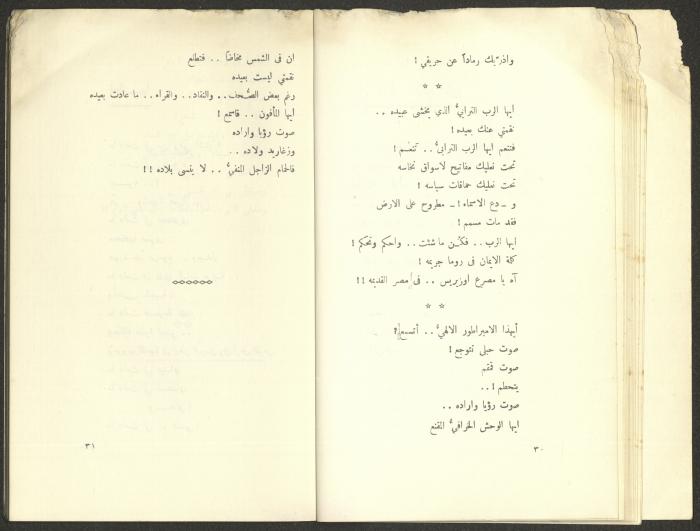 واذرّيك رماداً عن حريقي !
* *
ايها الرب الترابيُّ الذي يخشى عبيده ..
نقمتي عنك بعيده !
فتنعم ايها الرب الترابيُّ .. تنعم !
تحت نعليك مفاتيح لاسواق نخاسه
تحت نعليك حماقات سياسه !
و - دع الاسماء ! - مطروح على الارض
فقد مات مسمم !
ايها الرب .. فكن ما شئت .. واحكم وتحكم !
كلمة الايمان في روما جريمه !
آه يا مصرع اوزيريس .. في مصر القديمه !!
* *
أيهذا الامبراطور الالهيُّ .. أتسمع ؟
صوت حبلى تتوجع !
صوت قمقم
يتحطم ! ..
صوت رؤيا واراده ..
ايها الوحش الخرافيُّ المقنع
٣٠
ان في الشمس مخاضا .. فتطلع
نقمتي ليست بعيده
رغم بعض الصُّحف .. والنقاد .. والقراء .. ما عادت بعيده
أيها المأفون .. فاسمع !
صوت رؤيا واراده
وزغاريد ولاده ..
فالحمام الزاجل المنفيُّ .. لا ينسى بلاده !!
٣١